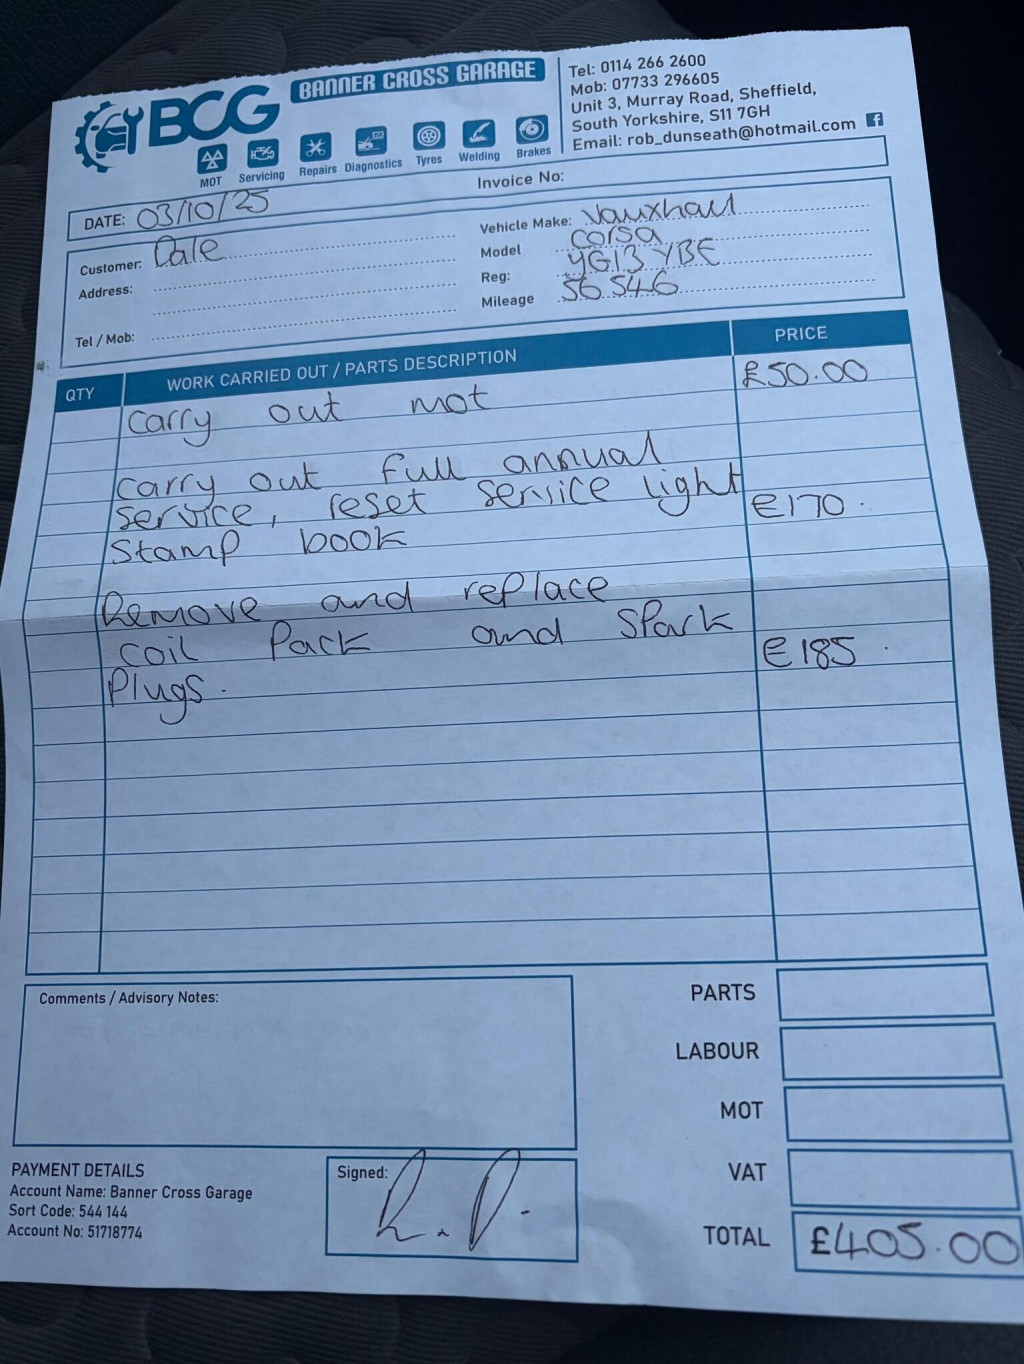 BCG BANNER CROSS GARAGE
MOT Servicing Repairs Diagnostics Tyres Welding Brakes
Tel: 0114 266 2600
Mob: 07733 296605
Unit 3, Murray Road, Sheffield,
South Yorkshire, S11 7GH
Email: rob_dunseath@hotmail.com
DATE: 03/10/25
Invoice No:
Customer: Dale
Address:
Tel / Mob:
Vehicle Make: Vauxhall
Model Corsa
Reg: YG13 YBE
Mileage 56546
QTY WORK CARRIED OUT / PARTS DESCRIPTION PRICE
Carry out mot £50.00
Carry out full annual
service, reset service light £170.
Stamp book
Remove and replace
coil Pack and Spark £185.
Plugs.
Comments / Advisory Notes:
PARTS
LABOUR
MOT
VAT
TOTAL £405.00
PAYMENT DETAILS
Account Name: Banner Cross Garage
Sort Code: 544 144
Account No: 51718774
Signed: R.D.